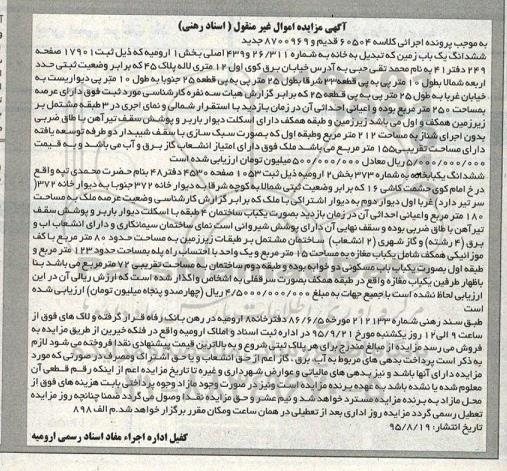 آگهی مزایده اموال غیر منقول ( اسناد رهنی)
به موجب پرونده اجرائی کلاسه ۶۰۵۰۴ قدیم و ۸۷۰۰۹۶۹ جدید
ششدانگ یک باب زمین که تبدیل به خانه به شماره ۲۶/۳۱۱ و ۴۳۹ اصلی بخش ۱ ارومیه که ذیل ثبت ۱۷۹۰۱ صفحه
۲۴۹ دفتر ۴۱ به نام محمد تقی حبی به آدرس خیابان برق کوی اول ۱۲ متری لاله پلاک ۴۵ که برابر وضعیت ثبتی حدد
اربعه شمالا بطول ۱۰ متر پی به پی قطعه ۲۳ شرقا بطول ۲۵ متر پی به پی قطعه ۲۵ جنوبا به طول ۱۰ متر پی دیواریست به
خیابان غربا به طول ۲۵ متر پی به پی قطعه ۲۵ که برابر گزارش هیات سه نفره کارشناسی مورد ثبت فوق دارای عرصه
بمساحت ۲۵۰ متر مربع بوده و اعیانی احداثی آن در زمان بازدید با استقرار شمالی و نمای اجری در ۳ طبقه مشتمل بر
زیرزمین همکف و اول می باشد زیرزمین و طبقه همکف دارای اسکلت دیوار باربر و پوشش سقف تیرآهن با طاق ضربی
بدون اجرای شناژ به مساحت ۲۱۲ متر مربع وطبقه اول که بصورت سبک سازی با سقف شیبدار دو طرفه توسعه یافته
دارای مساحت تقریبی ۱۵۵ متر مربع می باشد ملک فوق دارای امتیاز انشعاب گاز برق و آب می باشد و به قیمت
۵/۰۰۰/۰۰۰/۰۰۰ ریال معادل ۵۰۰/۰۰۰/۰۰۰ میلیون تومان ارزیابی شده است
ششدانگ یکبابخانه به شماره ۳۷۳ بخش ۲ ارومیه ذیل ثبت ۱۰۵۳ صفحه ۴۵۳۰ دفتر ۴۸ بنام حضرت محمدی تپه واقع
در خ امام کوی حشمت کاشی ۱۶ که برابر وضعیت ثبتی شمالا به کوچه شرقا به دیوار خانه ۳۷۲ جنوبا به دیوار خانه ۳۷۲(
سر تیر دارد) غربا اول دیوار دوم به دیوار اشتراکی با ملک که برابر گزارش کارشناسی وضعیت عرصه ملک به مساحت
۱۸۰ متر مربع واعیانی احداثی آن در زمان بازدید بصورت یکباب ساختمان ۴ طبقه با اسکلت دیوار باربر و پوشش سقف
تیرآهن با طاق ضربی بوده و سقف نهایی آن دارای پوشش شیروانی است نمای ساختمان سیمانکاری و دارای انشعاب اب و
برق (۴ رشته) و گاز شهری (۲ انشعاب) ساختمان مشتمل بر طبقات زیرزمین به مساحت حدود ۸۰ متر مربع با کف
موزائیکی همکف شامل یکباب مغازه به مساحت ۱۵ متر مربع و یک واحد با احتساب راه پله بمساحت حدود ۱۲۳ متر مربع و
طبقه اول بصورت یکباب باب مسکونی دو خوابه بوده و طبقه دوم ساختمان به مساحت تقریبی ۷۲ متر مربع می باشد بنا
باظهار طرفین یکباب مغازه واقع در طبقه همکف بصورت سرقفلی به اشخاص واگذار شده است که ارزش ریالی آن در این
ارزیابی لحاظ نشده است با جمیع جهات به مبلغ ۴/۵۰۰/۰۰۰/۰۰۰ ریال (چهارصدو پنجاه میلیون تومان) ارزیابی شده
است
طبق سند رهنی شماره ۲۱۲۱۳۳ مورخه ۸۶/۶/۵ دفترخانه ۸ ارومیه در رهن بانک رفاه قرار گرفته و پلاک های فوق از
ساعت ۹ الی ۱۲ روز یکشنبه مورخ ۹۵/۹/۲۱ در اداره ثبت اسناد و املاک ارومیه واقع در فلکه خیرین از طریق مزایده به
فروش می رسد مزایده از مبالغ مندرج برای هر پلاک ثبتی شروع و به بالاترین قیمت پیشنهادی نقدا فروخته می شود لازم
به ذکر است پرداخت بدهی های مربوط به آب برق ، گاز اعم از حق انشعاب و یا حق اشتراک و مصرف در صورتی که مورد
مزایده دارای آنها باشد و نیز بدهی های مالیاتی و عوارض شهرداری و غیره تا تاریخ مزایده اعم از اینکه رقم قطعی آن
معلوم شده یا نشده باشد به عهده برنده مزایده است ونیز در صورت وجود مازاد وجوه پرداختی بابت هزینه های فوق از
محل مازاد به برنده مزایده مسترد خواهد شد و نیم عشر و حق مزایده نقدا وصول می گردد ضمنا چنانچه روز مزایده
تعطیل رسمی گردد مزایده روز اداری بعد از تعطیلی در همان ساعت ومکان مقرر برگزار خواهد شد. م الف ۸۹۸
تاریخ انتشار: ۹۵/۸/۱۹
کفیل اداره اجراء مفاد اسناد رسمی ارومیه